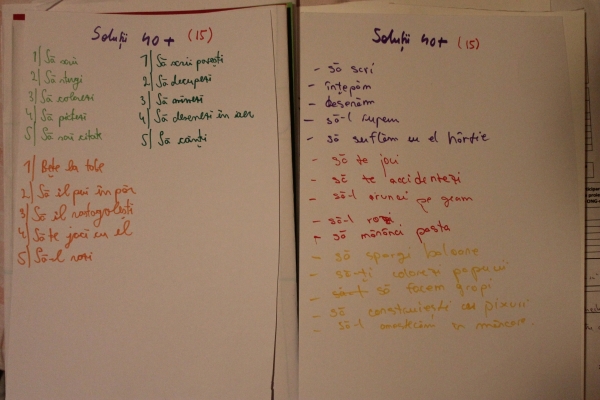 Soluții 40+ (15)
1| Să scrii
2| Să ștergi
3| Să colorezi
4| Să pictezi
5| Să scrii citate
1| Să scrii povești
2| Să decupezi
3| Să
4| Să desenezi în aer
5| Să cânți
1| Bețe la tobe
2| Să îl pui în păr
3| Să îl rostogolești
4| Să te joci cu el
5| Să-l rozi
Soluții 40+ (15)
- să scri
- înțepăm
- desenăm
- să-l rupem
- să suflăm cu el hârtie
- să te joci
- să te accidentezi
- să-l arunci pe geam
- să-l rozi
- să mănânci pasta
- să spargi baloane
- să-ți colorezi papucii
- să facem gropi
- să construiești cu pixuri
- să-l amestecăm în mâncare.